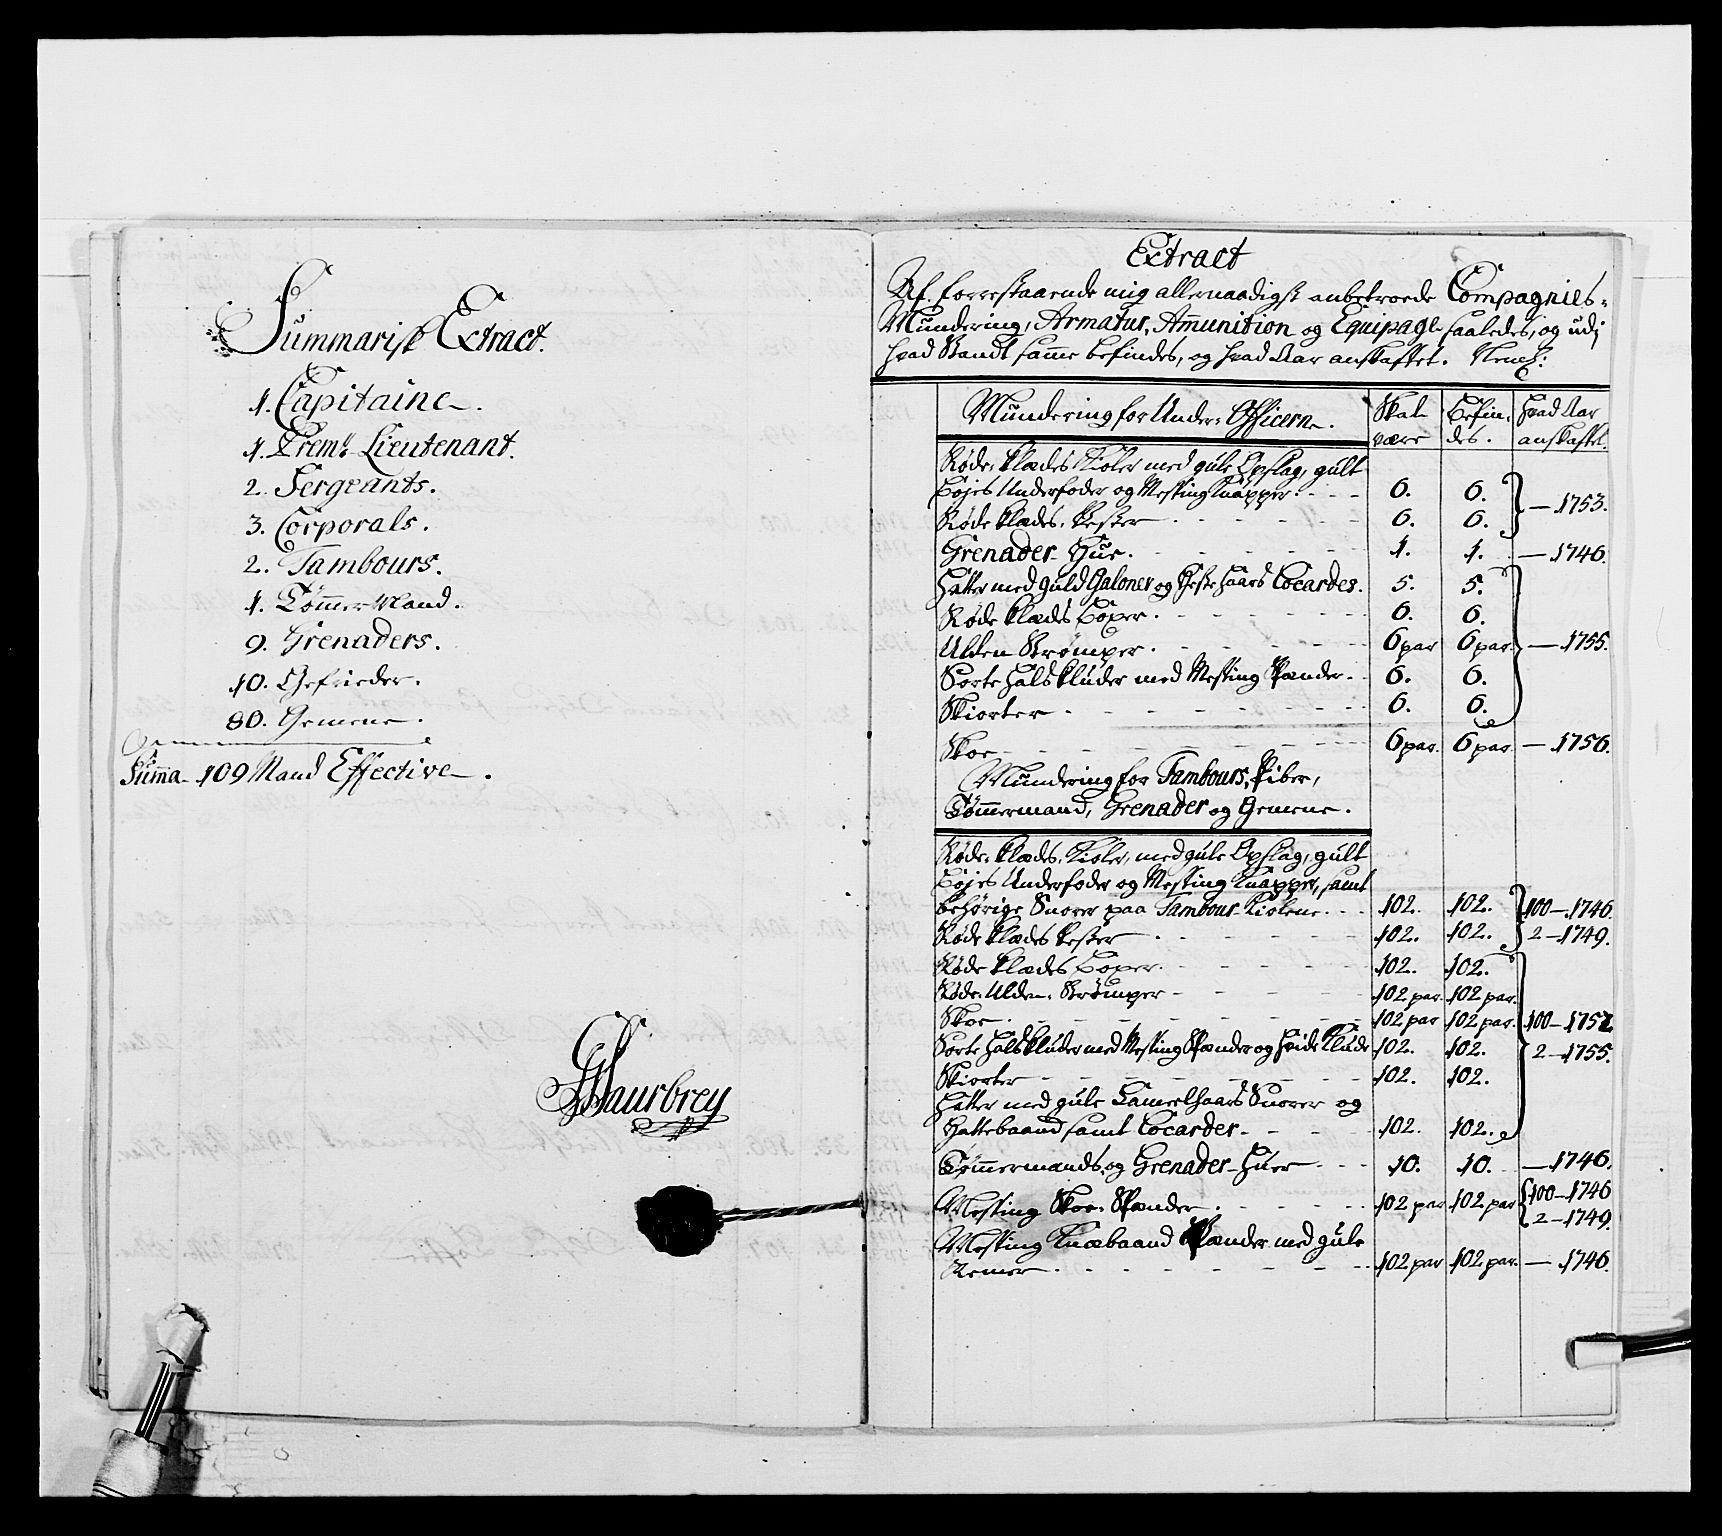 Summarisk Extract.
1. Capitaine.
1. Prem: Lieutenant.
2. Sergeants.
3. Corporals.
2. Tambours.
1. Tømmer Mand.
9. Grenaders.
10. Gefrieder.
80. Gemene.
Summa 109 Mand Effective.
Saurbrey
Extract
Af forrestaaende mig allernaadigst anbetroede Compagnies-
Mundering, Armatur, Amunition og Equipage saaledes, og udi
hvad Stand samme befindes, og hvad Aar anskaffet. Neml:
Mundering for Under-Officerne. Skal være Befindes. Hvad Aar anskaffet.
Røde Klædes Kioler med gule Opslag, gult
Bøjes Underfoder og Messing Knapper. 6. 6. 
Røde Klædes Vester 6. 6. — 1753.
Grenader Hue. 1. 1. — 1746.
Hatter med Guld Galoner og Heste Haars Cocardes. 5. 5.
Røde Klædes Boxer. 6. 6.
Ulden Strømper. 6 par 6 par. — 1755.
Sorte Halsklude med Messing Spænder. 6. 6.
Skiorter 6. 6.
Skoe 6 par. 6 par — 1756.
Mundering for Tambours, Piber,
Tømmermand, Grenader og Gemene.
Røde Klædes Kioler, med gule Opslag, gult
Bøjes Underfoder og Messing Knapper, samt
behørige Snorer paa Tambour-Kiolene. 102. 102. 100 — 1746.
Røde Klædes Vester 102. 102. 2 — 1749.
Røde Klædes Boxer. 102. 102.
Røde Ulden Strømper 102 par. 102 par.
Skoe. 102 par 102 par. 100 — 1752
Sorte Halsklude med Messing Spænder og Hvide Klude 102. 102. 2 — 1755.
Skiorter 102. 102.
Hatter med gule Camelhaars Snorer og
Hattebaand samt Cocarder 102. 102.
Tømmermands og Grenader-Huer 10. 10. — 1746.
Messing Skoe-Spænder. 102 par 102 par 100 — 1746 2 — 1749.
Messing Knæbaand Spænder med gule
Remer. 102 par 102 par. — 1746.